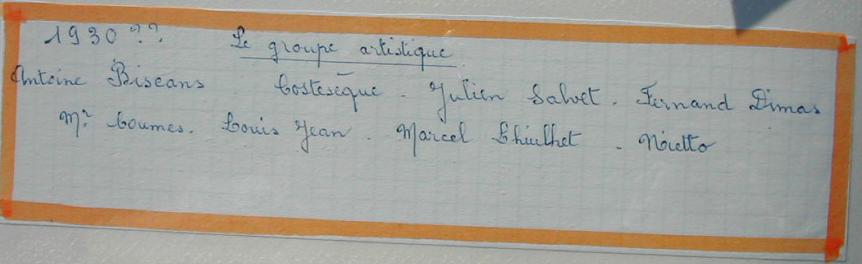 1930 ?? Le groupe artistique
Antoine Biscans Costeseque - Julien Salvet - Fernand Dimas
Mr Coumes. Louis Jean - Marcel Chiulhet - Nietto